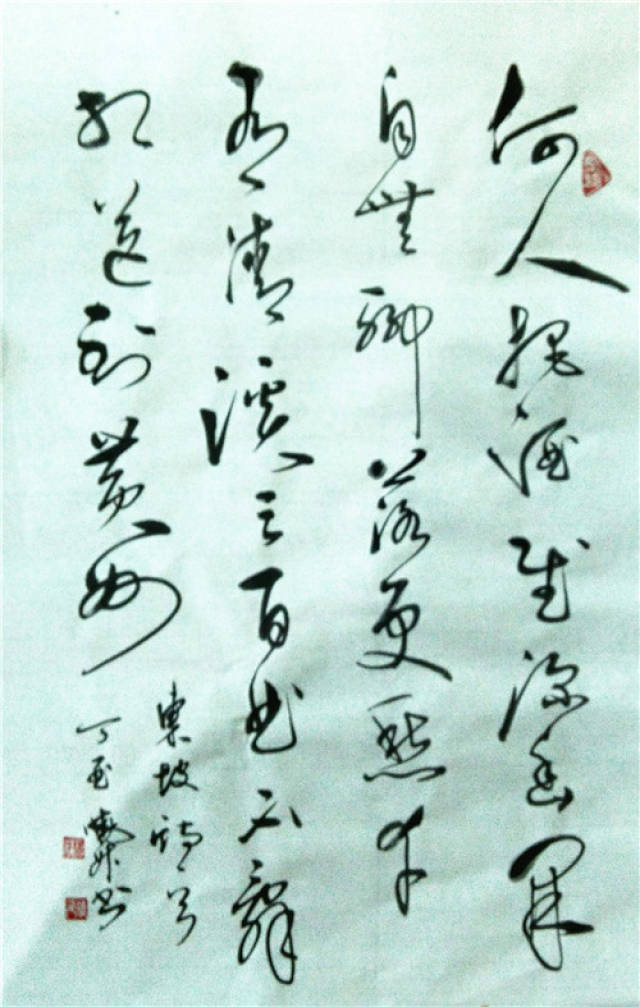 何人把酒慰深幽開
自無聊落更愁幸
有清溪三百曲不辭
相送到黃州
東坡詩
丁亥 书